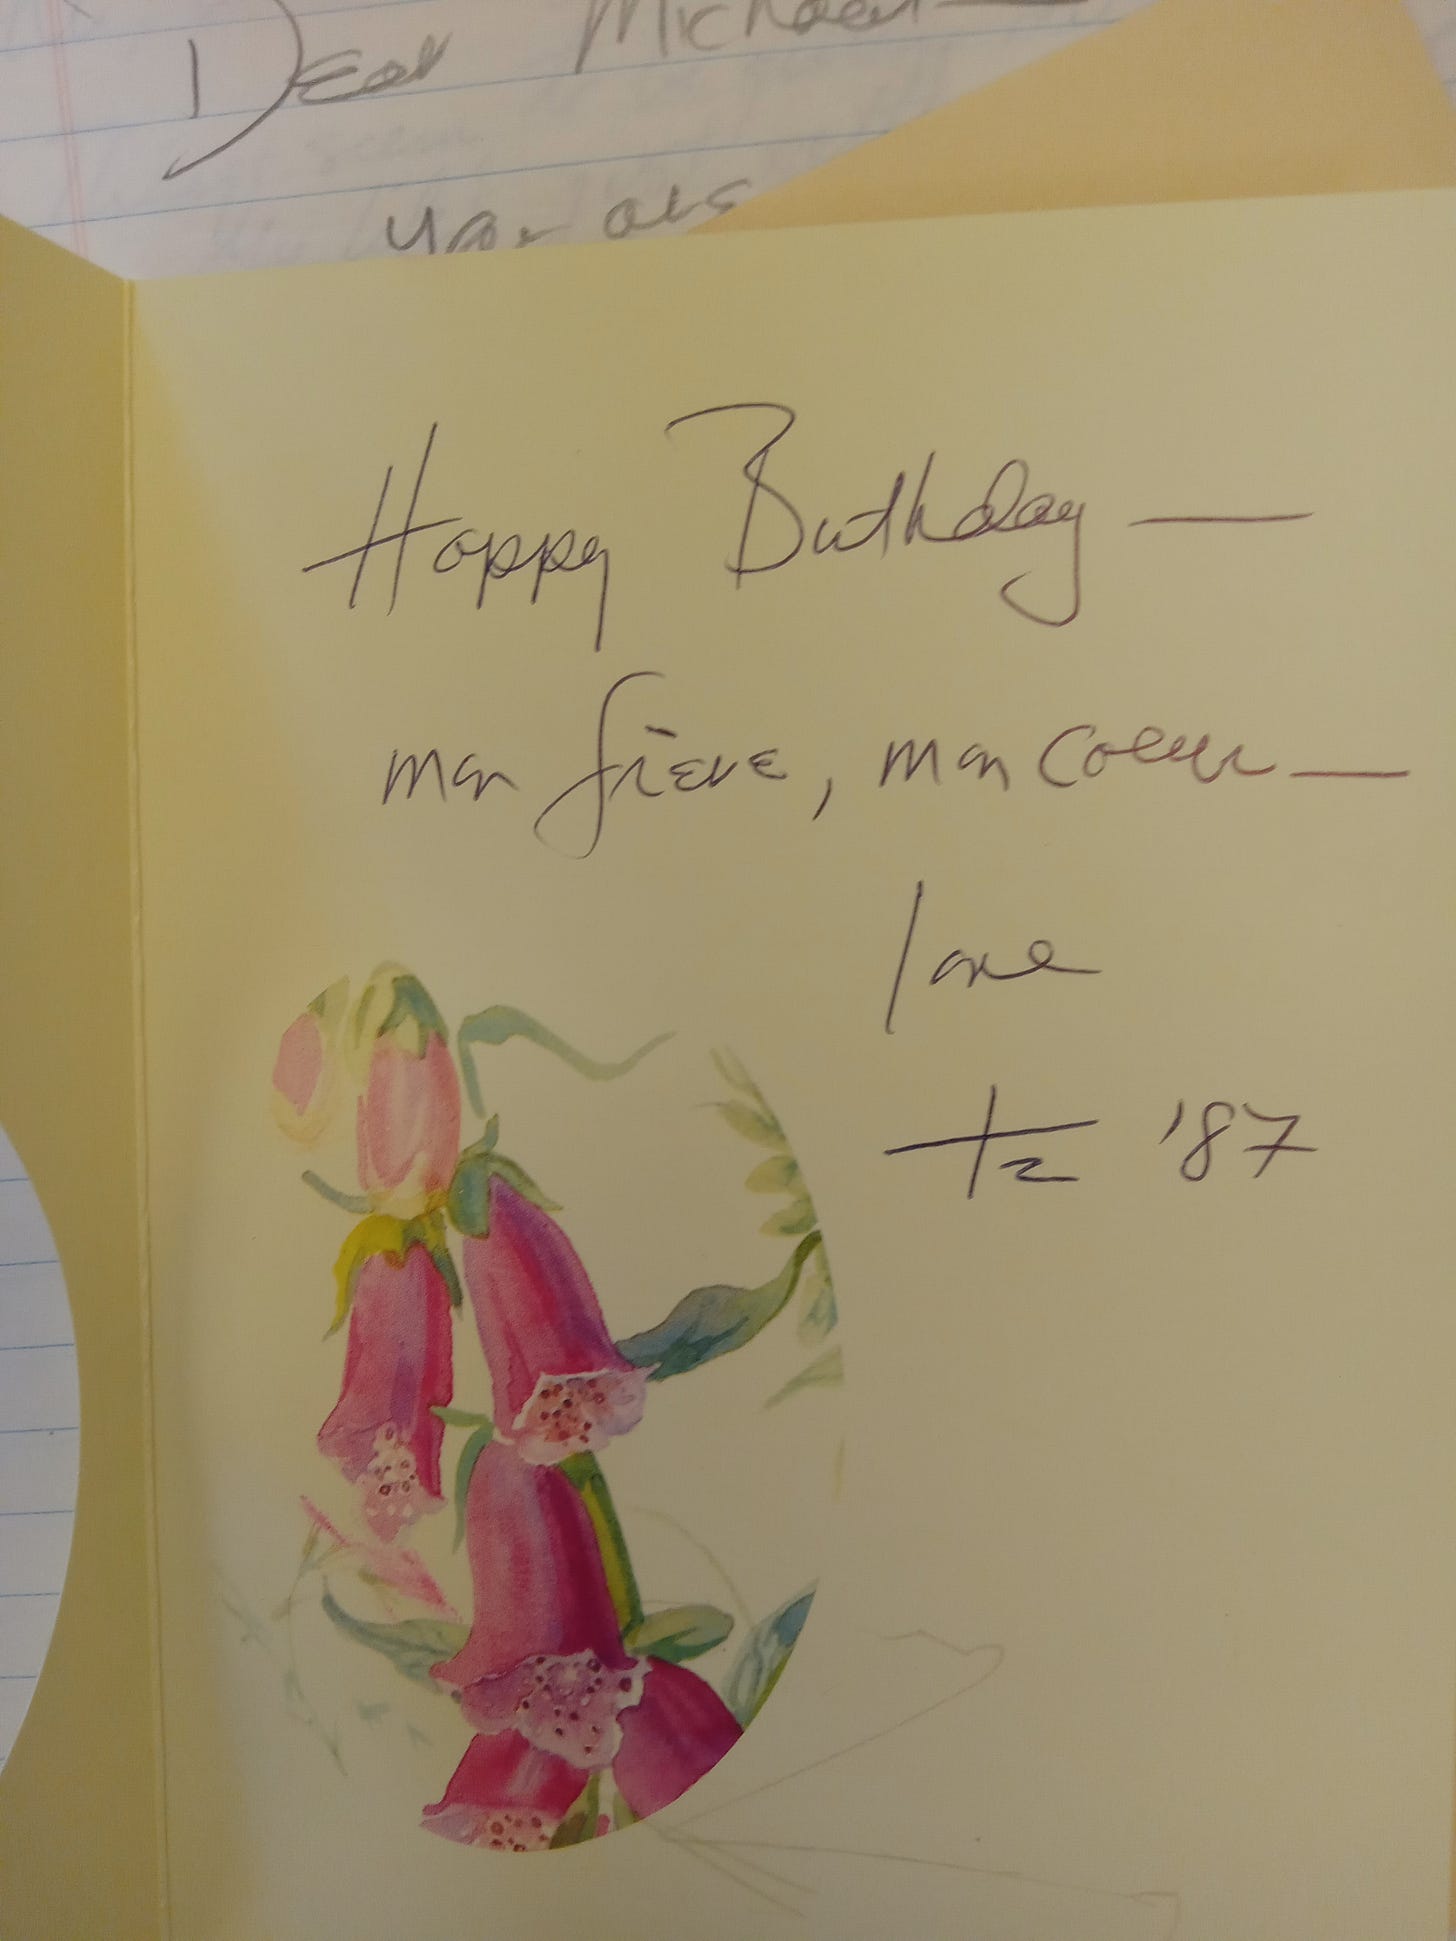 Dear Michael—
you are
Happy Birthday —
mon frère, mon coeur —
love
'87